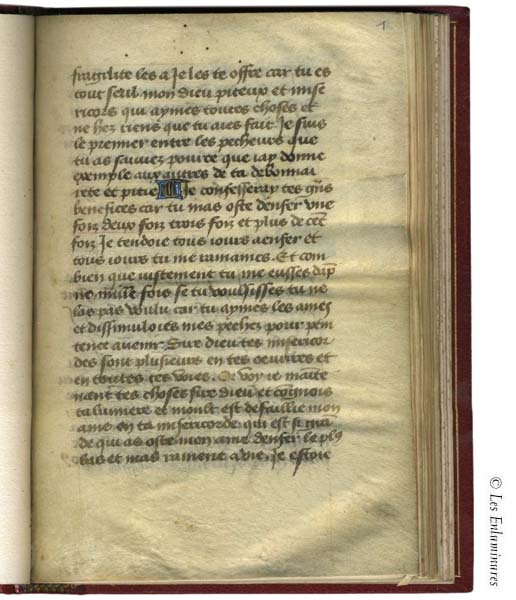 1
fragilite les a Je les te offre car tu es
tout seul mon dieu piteux et mise
ricors qui aymes toutes choses et
ne hez riens que tu aies fait. Je suis
le premier entre les pecheurs que
tu as sauuez pource que iay donne
exemple aux autres de ta debonnai
rete et pitie Je confesseray tes gñs
benefices car tu mas oste denfer vne
foiz deux foiz trois foiz et plus de cẽt
foiz Je tendoie tous iours a enfer et
tous iours tu me ramaines. Et com
bien que iustement tu me eusses dãp
ne mille fois se tu voulsisses tu ne
las pas voulu car tu aymes les ames
et dissimuloies mes pechez pour peni
tence auenir Sire dieu tes misericor
des sont plusieurs en tes oeuures et
en toutes tes voies. Or voy ie maĩte
nant tes choses sire dieu et cõgnois
ta lumiere et moult est defaillie mon
ame en ta misericorde qui est si grã
de qui as oste mon ame denfer le pl9
bas et mas ramene a vie. Je estoie
© Les Enluminures